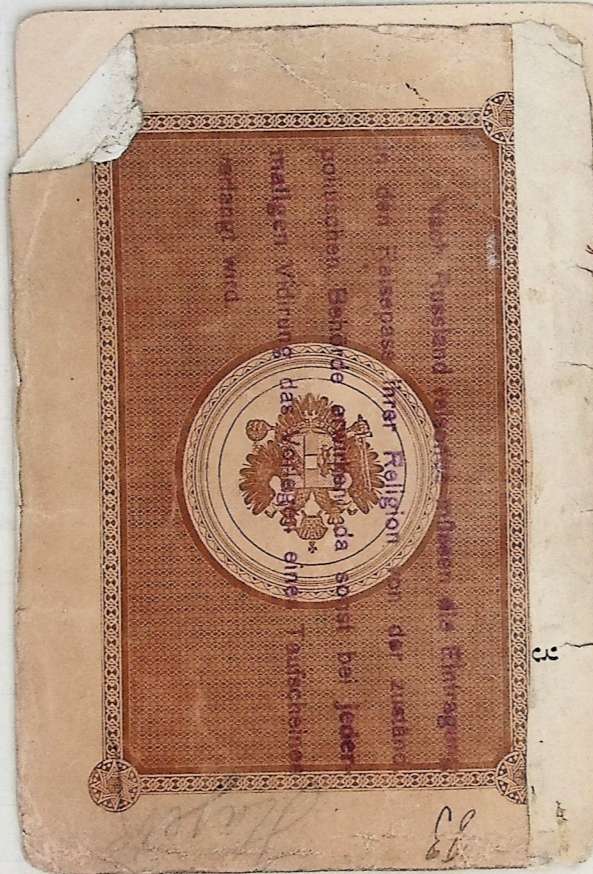 3
Nach Russland reisende müssen die Eintragung
in den Reisepass ihrer Religion von der zuständ
politischen Behörde erwirken, da sonst bei jeder
maligen Vidirung das Vorlegen eines Taufscheines
verlangt wird
93